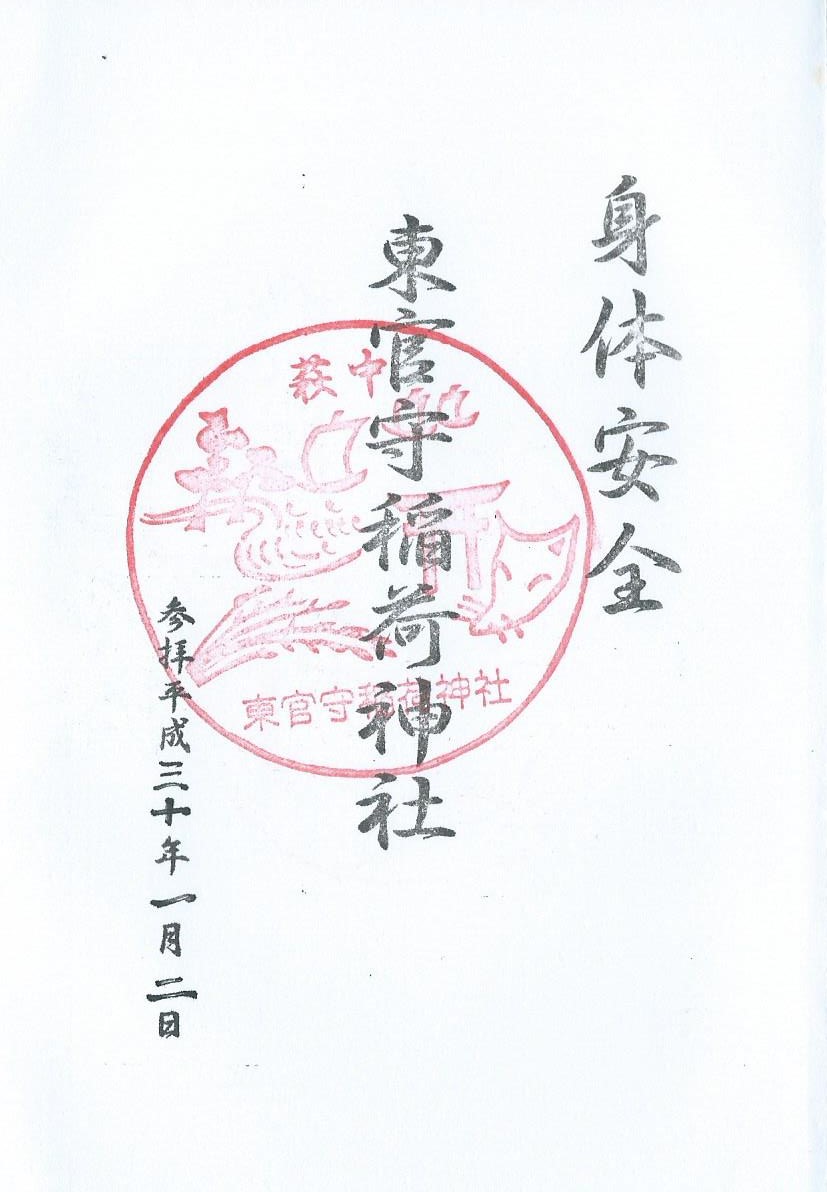 身体安全
東官守稲荷神社
萩中
東官守稲荷神社
参拝平成三十年一月二日